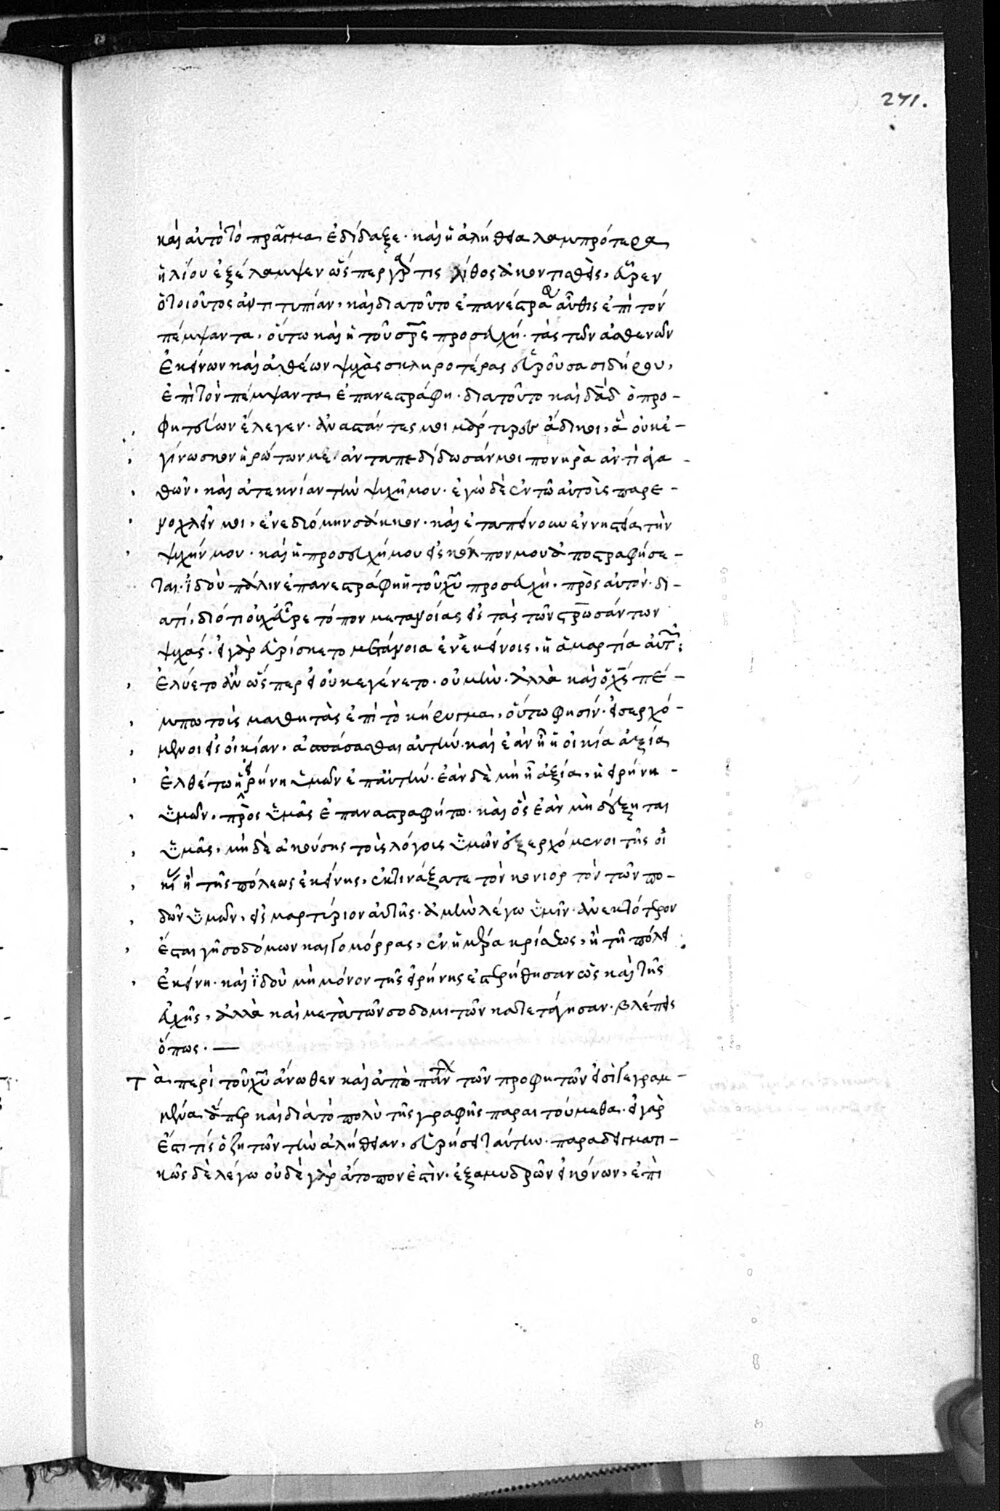 271.
καὶ αὐτὸ τὸ πρᾶγμα ἐδίδαξε· καὶ ἡ ἀλήθεια λαμπρότερα
ἡλίου ἐξέλαμψεν ὥσπερ γάρ τις λίθος ἀκοντισθεὶς, εὗρεν
ἀντιτυπίαν, καὶ διατοῦτο ἐπανεστρα αὖθις ἐπὶ τὸν
πέμψαντα, οὕτω καὶ ἡ τοῦ σρς προσευχή· τὰς τῶν ἀσθενῶν
ἐκείνων καὶ ἀθέων ψυχὰς σκληροτέρας εὑροῦσα σιδήρου,
ἐπὶ τὸν πέμψαντα ἐπανεστράφη· διατοῦτο καὶ δαδ ὁ προ-
φητεύων ἔλεγεν· ἀναστάντες μοι μάρτυρες ἄδικοι, ἃ οὐκ ἐ-
γίνωσκον ἠρώτων με· ἀνταπεδίδωσάν μοι πονηρὰ ἀντὶ ἀγα
θῶν, καὶ ἀτεκνίαν τῇ ψυχῇ μου· ἐγὼ δὲ ἐν τῷ αὐτοὺς παρε-
νοχλεῖν μοι, ἐνεδυόμην σάκκον· καὶ ἐταπείνουν ἐν νηστεία τὴν
ψυχήν μου· καὶ ἡ προσευχή μου εἰς κόλπον μου ἀποστραφήσε-
ται· ἰδοὺ πάλιν ἐπανεστράφη ἡ τοῦ χυ προσευχὴ, πρὸς αὐτόν· δι-
ατί, διότι οὐχ εὗρε τόπον μετανοίας εἰς τὰς τῶν στρωσάντων
ψυχάς· εἰ γὰρ εὑρίσκετο μετάνοια ἐν ἐκείνοις, ἡ ἁμαρτία αὐτ
ἐλύετο ἂν ὥσπερ εἰ οὐκ ἐγένετο· οὐ μὴν· ἀλλὰ καὶ ὁ χς πέ-
μπων τοὺς μαθητὰς ἐπὶ τὸ κήρυγμα, οὕτω φησίν· εἰσερχό-
μενοι εἰς οἰκίαν, ἀσπάσασθαι αὐτήν· καὶ ἐὰν ἦ ἡ οἰκία ἀξία
ἐλθέτω ἡ εἰρήνη ὑμῶν ἐπ' αὐτήν· ἐὰν δὲ μὴ ἦ ἀξία, ἡ εἰρήνη
ὑμῶν, πρὸς ὑμᾶς ἐπαναστραφήτω· καὶ ὃς ἐὰν μὴ δέξηται
ὑμᾶς, μηδὲ ἀκούσης τοὺς λόγους ὑμῶν ἐξερχόμενοι τῆς οἰ
κί ἢ τῆς πόλεως ἐκείνης, ἐκτινάξατε τὸν κονιορτὸν τῶν πο-
δῶν ὑμῶν, εἰς μαρτύριον αὐτῆς· ἀμὴν λέγω ὑμῖν· ἀνεκτότερον
ἔσται γῆ σοδόμων καὶ γομόρρας, ἐν ἡμέρα κρίσεως, ἢ τῆ πόλει
ἐκείνη· καὶ ἰδοὺ μὴ μόνον τῆς εἰρήνης ἐστερήθησαν ὡς καὶ τῆς
εὐχῆς, ἀλλὰ καὶ μετὰ τῶν σοδομιτῶν κατετάγησαν· βλέπεις
ὅπως· —
Τὰ περὶ τοῦ χυ ἄνωθεν καὶ ἀπὸ τῶν προφητῶν εἰσὶ γεγραμ-
μένα ἅπερ καὶ διὰ τὸ πολὺ τῆς γραφῆς παραιτούμεθα· εἰ γὰρ
ἔστι τίς ὁ ζητῶν τὴν ἀλήθειαν, εὑρήσει ταύτην· παραδειγματι-
κῶς δὲ λέγω οὐδὲ γὰρ ἄτοπόν ἐστιν· ἐξ ἀμυδρῶν εἰκόνων, ἐπὶ